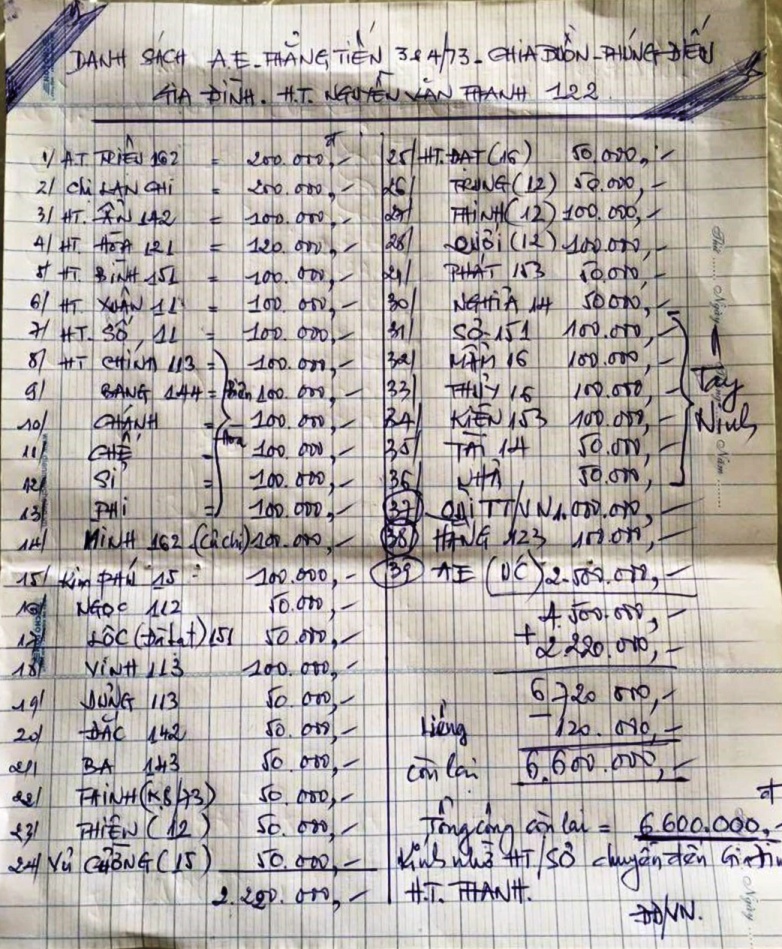 DANH SÁCH A.E. THĂNG TIẾN 3&4/73 - CHIA BUỒN - PHÚNG ĐIẾU
GIA ĐÌNH. H.T. NGUYỄN VĂN THANH 122
1/ A.T. TRIỀU 162 = 200.000đ,-
2/ Chị LAN CHI = 200.000,-
3/ HT. ÂN 142 = 100.000,-
4/ HT. HÒA 121 = 120.000,-
5/ HT. BÌNH 151 = 100.000,-
6/ HT. XUÂN 11 = 100.000,-
7/ HT. SỐ, 11 = 100.000,-
8/ HT CHÍNH 113 = 100.000,-
9/ BANG 144 = 100.000,-
10/ CHÁNH = 100.000,-
11/ CHẾ = 100.000,-
12/ SỈ = 100.000,-
13/ PHI = 100.000,-
Biên Hòa
14/ MINH 162 (Củ chi) 100.000,-
15/ Kim PHÚ 15 100.000,-
16/ NGỌC 112 50.000,-
17/ LỘC (Đà Lạt) 151 50.000,-
18/ VINH 113 100.000,-
19/ DŨNG 113 50.000,-
20/ ĐẮC 142 50.000,-
21/ BA 143 50.000,-
22/ THINH (K8/73) 50.000,-
23/ THIỆN (12) 50.000,-
24/ VŨ CƯỜNG (15) 50.000,-
2.220.000,-
25/ HT. ĐẠT (16) 50.000,-
26/ TRUNG (12) 50.000,-
27/ THINH (12) 100.000,-
28/ QUỚI (12) 100.000,-
29/ PHÁT 153 50.000,-
30/ NGHĨA 14 50.000,-
31/ SỞ 151 100.000,-
32/ MẪN 16 100.000,-
33/ THỦY 16 100.000,-
34/ KIÊN 153 100.000,-
35/ TÀI 14 50.000,-
36/ NHÃ 50.000,-
Tây Ninh
37/ QUĨ TT/VN 1.000.000,-
38/ HÙNG 123 100.000,-
39 AE (ÚC) 2.500.000,-
4.500.000,-
+ 2.220.000,-
6.720.000,-
- 120.000,-
còn lại 6.600.000,-
Tổng cộng còn lại = 6.600.000đ,-
Kính nhờ HT/SỞ chuyển đến Gia đìn
H.T. THANH.
ĐD/VN.
Thứ ..... Ngày ..... Năm .....
Ngày .....